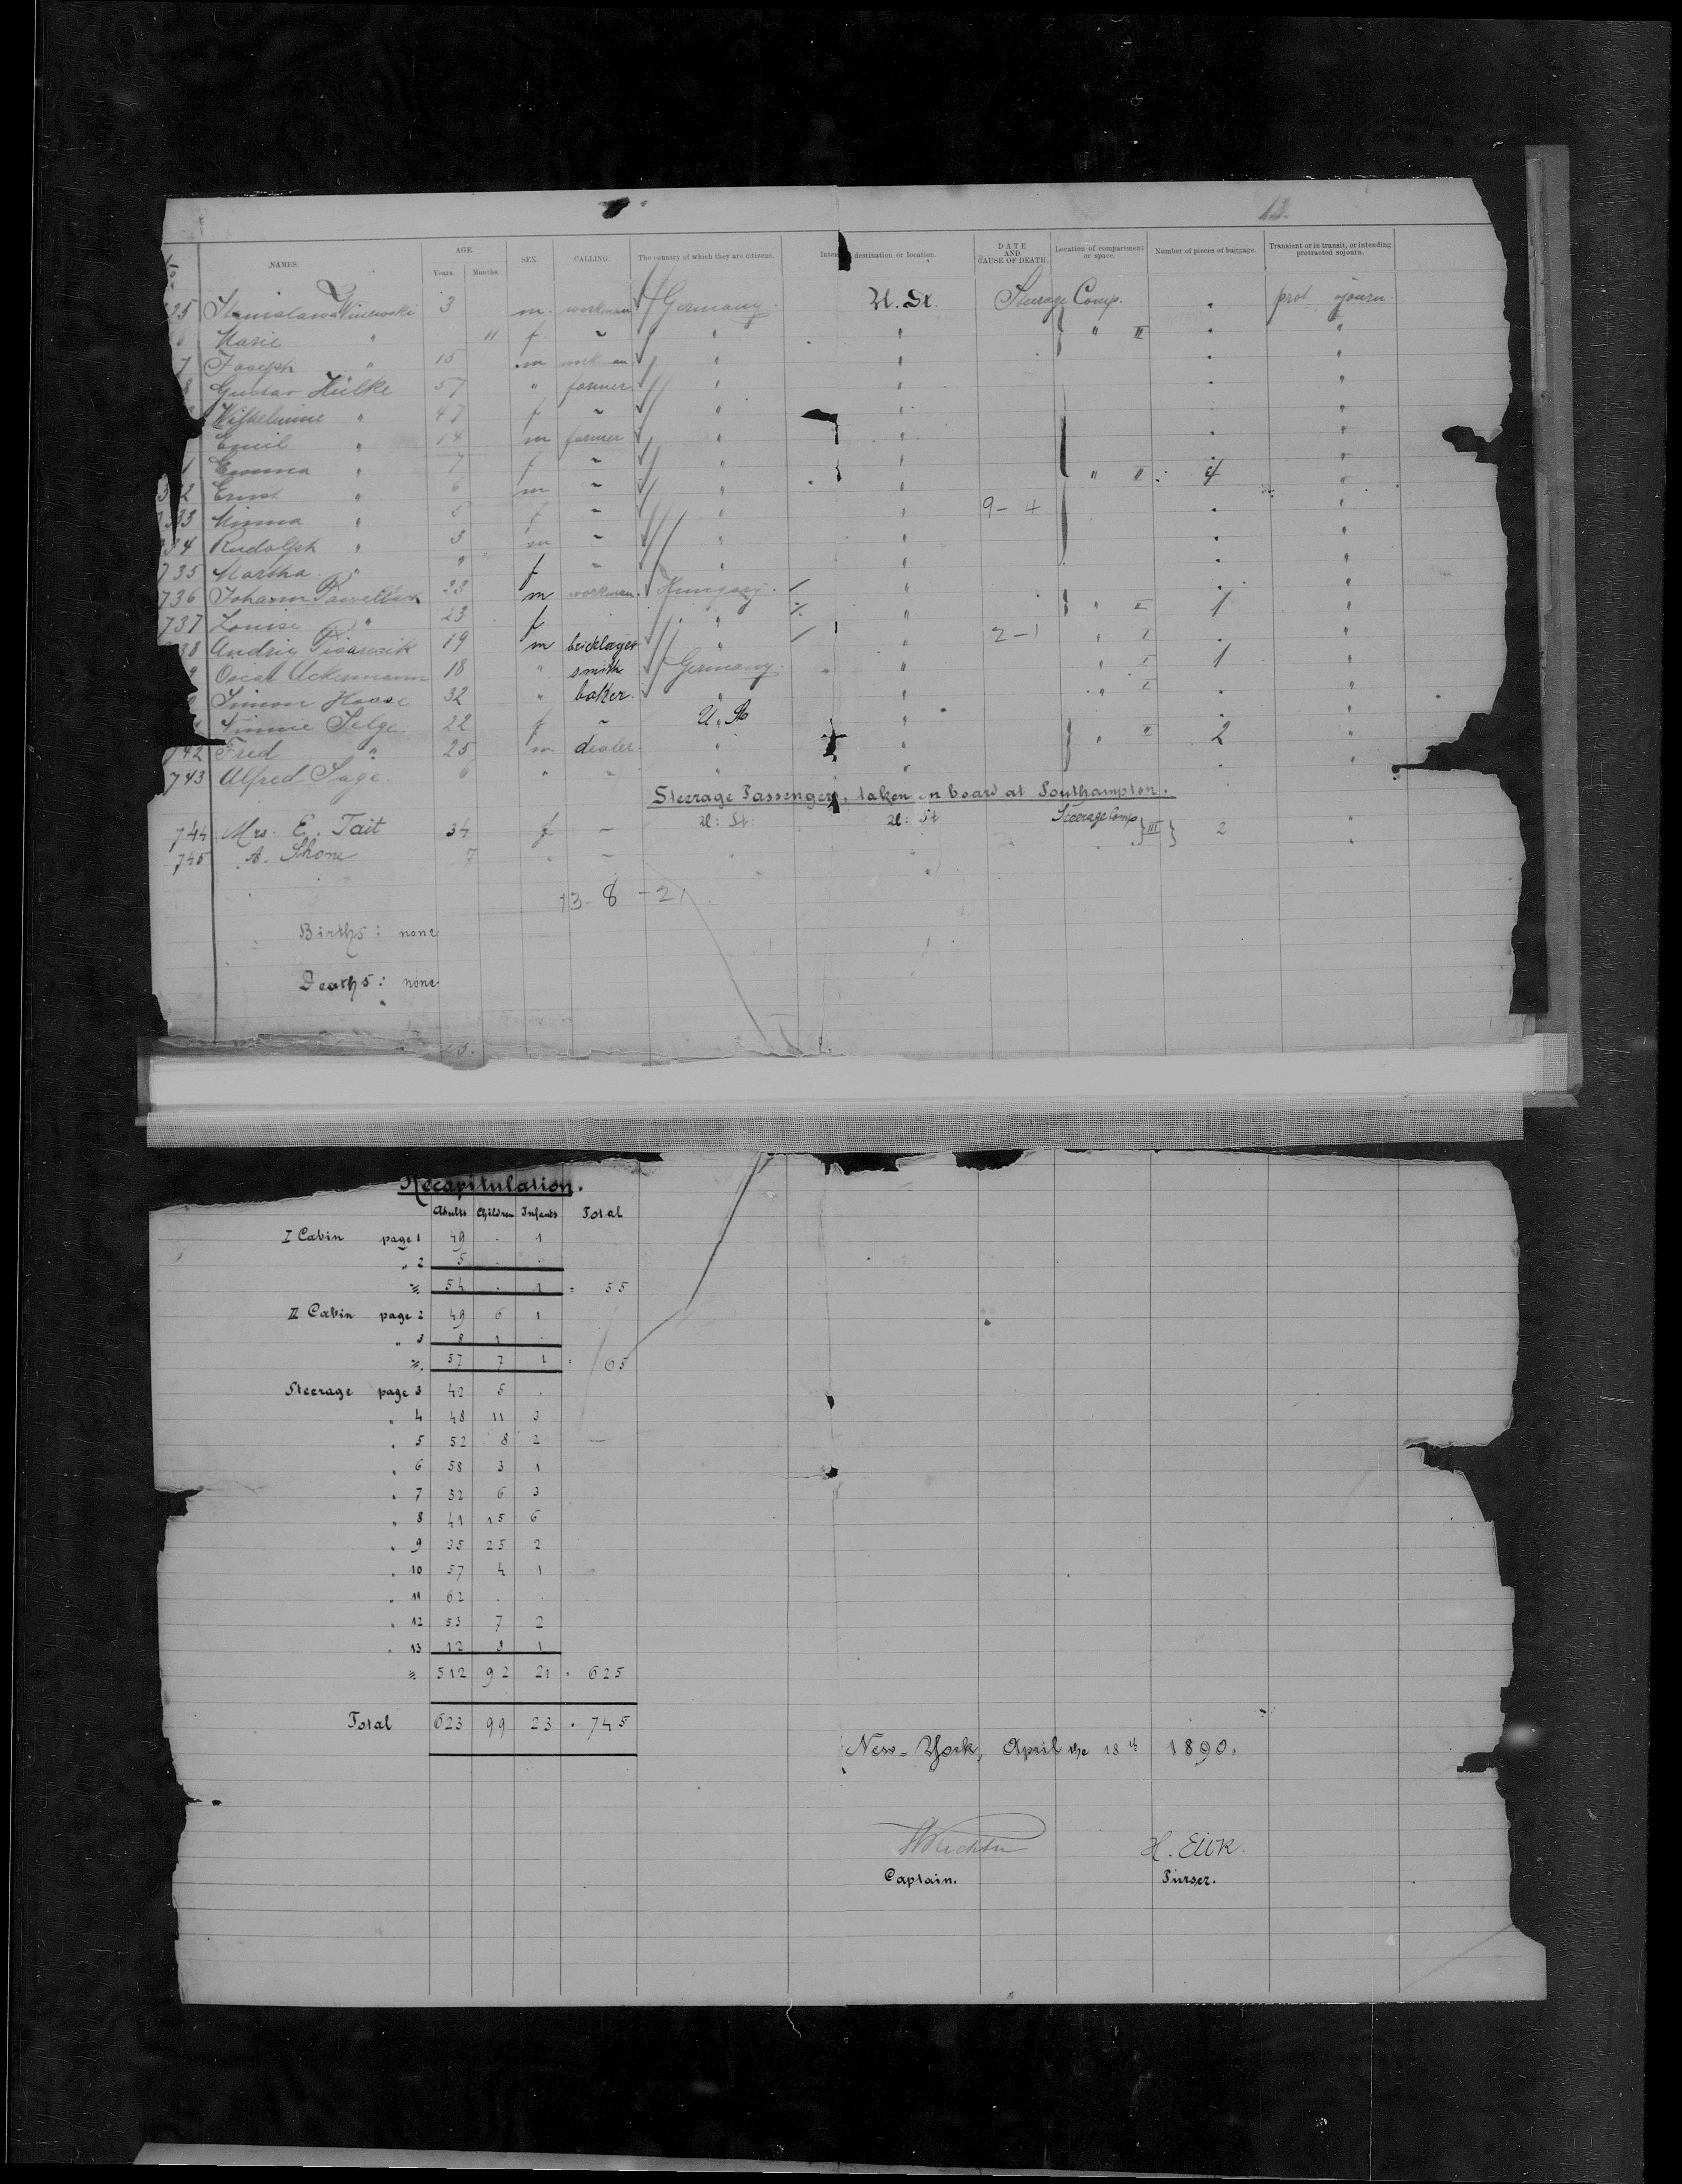 13.
NAMES. AGE. Years. Months. SEX. CALLING. The country of which they are citizens. destination or location. DATE AND CAUSE OF DEATH. Location of compartment or space. Number of pieces of baggage. Transient or in transit, or intending protracted sojourn.
25 3 m. workman Germany. U. St. Steerage Comp. prot
Marie " " f " II
7 Joseph " 15 m workman
8 Gustav Hülke 57 " farmer
Wilhelmine " 47 f
Emil " 14 m farmer
1 Emma " 7 f " " 4
2 Ernst " 6 m
33 Minna " 5 f 9-4
34 Rudolph " 3 m
735 Martha " f
736 Johann 23 m workman Hungary.
737 Louise " 23 f " I 1
38 Andrig 19 m bricklayer 2-1 " I
Oscar Ackermann 18 " smith Germany. " I 1
Simon Haase 32 " baker. " I
Minnie Selge 22 f U. St
742 Fred " 25 m dealer " I 2
743 Alfred Sage. 6 "
Steerage Passengers, taken on board at Southampton.
744 Mrs. E. Tait 34 f U: St: U: St Steerage Comp III 2
745 A. Shone 7
13-8-21
Births: none
Deaths: none
Recapitulation.
Adults Children Infants Total
I Cabin page 1 49 . 1
" 2 5 . .
54 . 1 = 55
II Cabin page 2 49 6 1
" 3 8 1 .
57 7 1 = 65
Steerage page 3 42 5 .
" 4 48 11 3
" 5 52 8 2
" 6 58 3 1
" 7 52 6 3
" 8 41 15 6
" 9 35 25 2
" 10 57 4 1
" 11 62 . .
" 12 53 7 2
" 13 12 8 1
512 92 21 = 625
Total 623 99 23 = 745
New-York, April the 18th 1890.
H. Eick.
Captain. Purser.